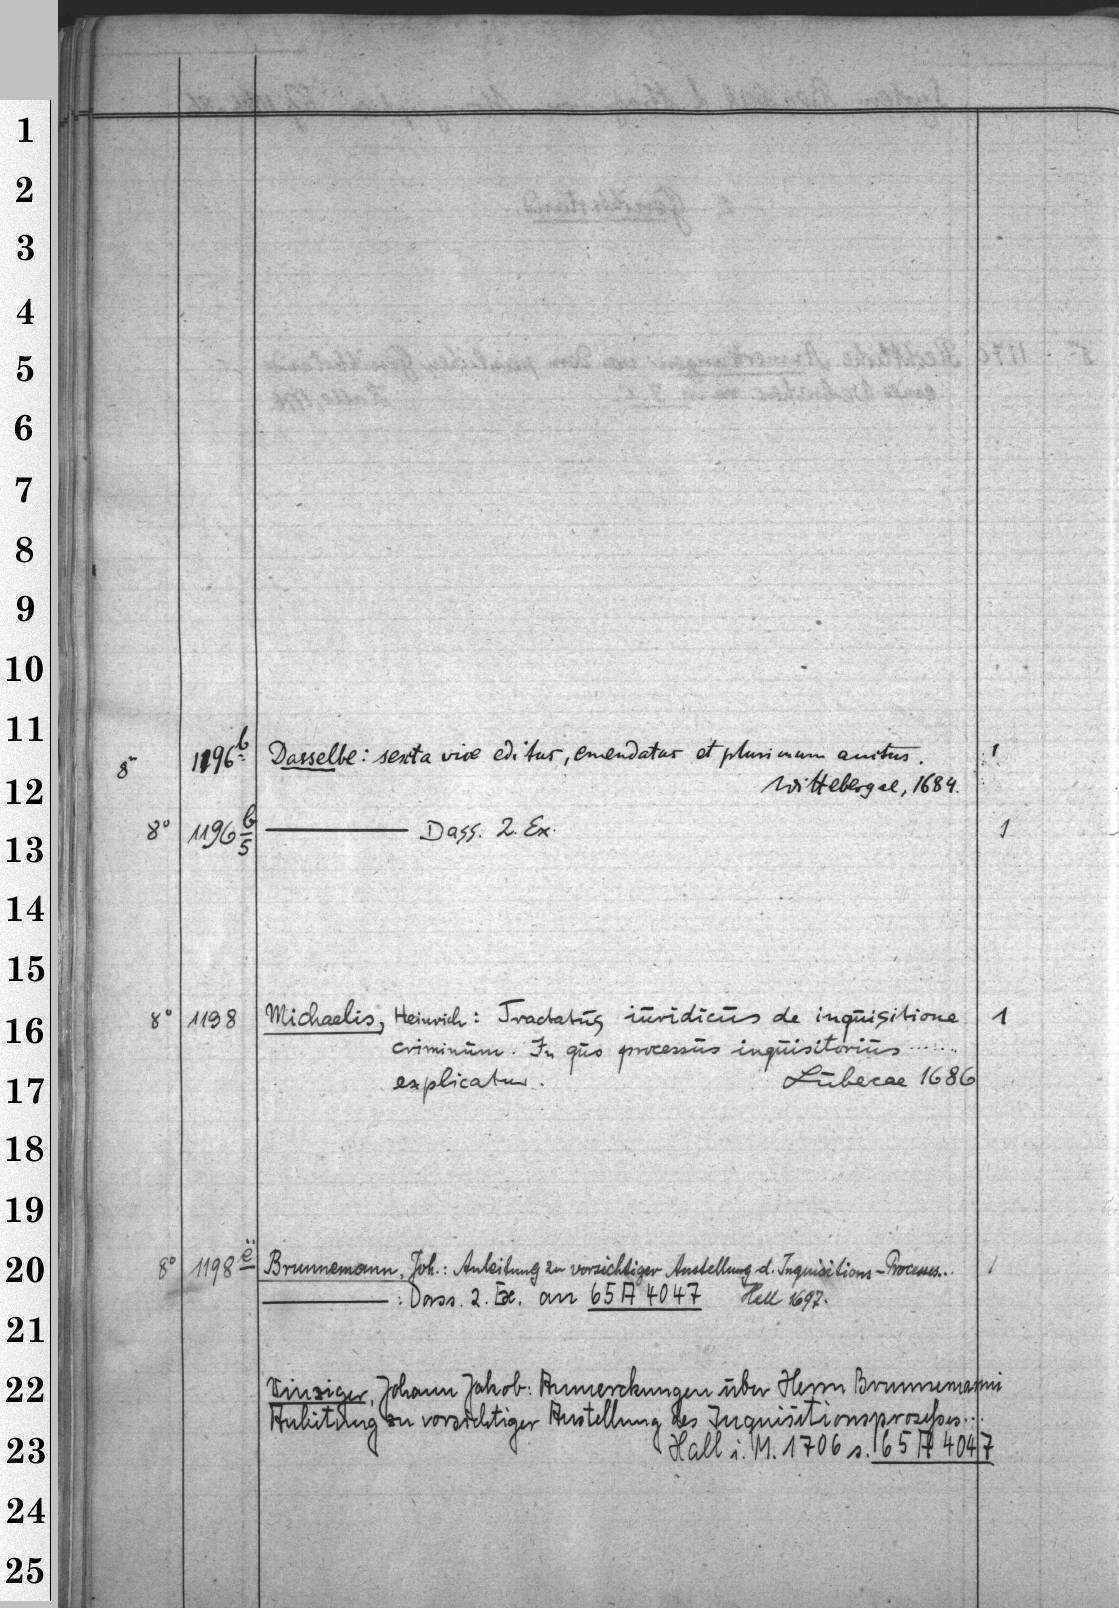 1
2
3
4
5
6
7
8
9
10
11
8° 1196 b Dasselbe: sexta vice editus, emendatus et plurimum auctus. 1
12
Wittebergae, 1684.
13
8° 1196 b/5 Dass. 2. Ex. 1
14
15
16
8° 1198 Michaelis, Heinrich: Tractatus iuridicus de inquisitione 1
criminum. In quo processus inquisitorius ......
17
explicatur. Lubecae 1686
18
19
20
8° 1198 e Brunnemann, Joh.: Anleitung zu vorsichtiger Anstellung d. Inquisitions-Processes.. 1
: Dass. 2. Ex. an 65 A 4047 Hall 1697.
21
22
Vinziger, Johann Jakob: Anmerckungen über Herrn Brunnemanni
Anleitung zu vorsichtiger Anstellung des Inquisitionsprozesses...
23
Hall i. M. 1706 s. 65 A 4047
24
25